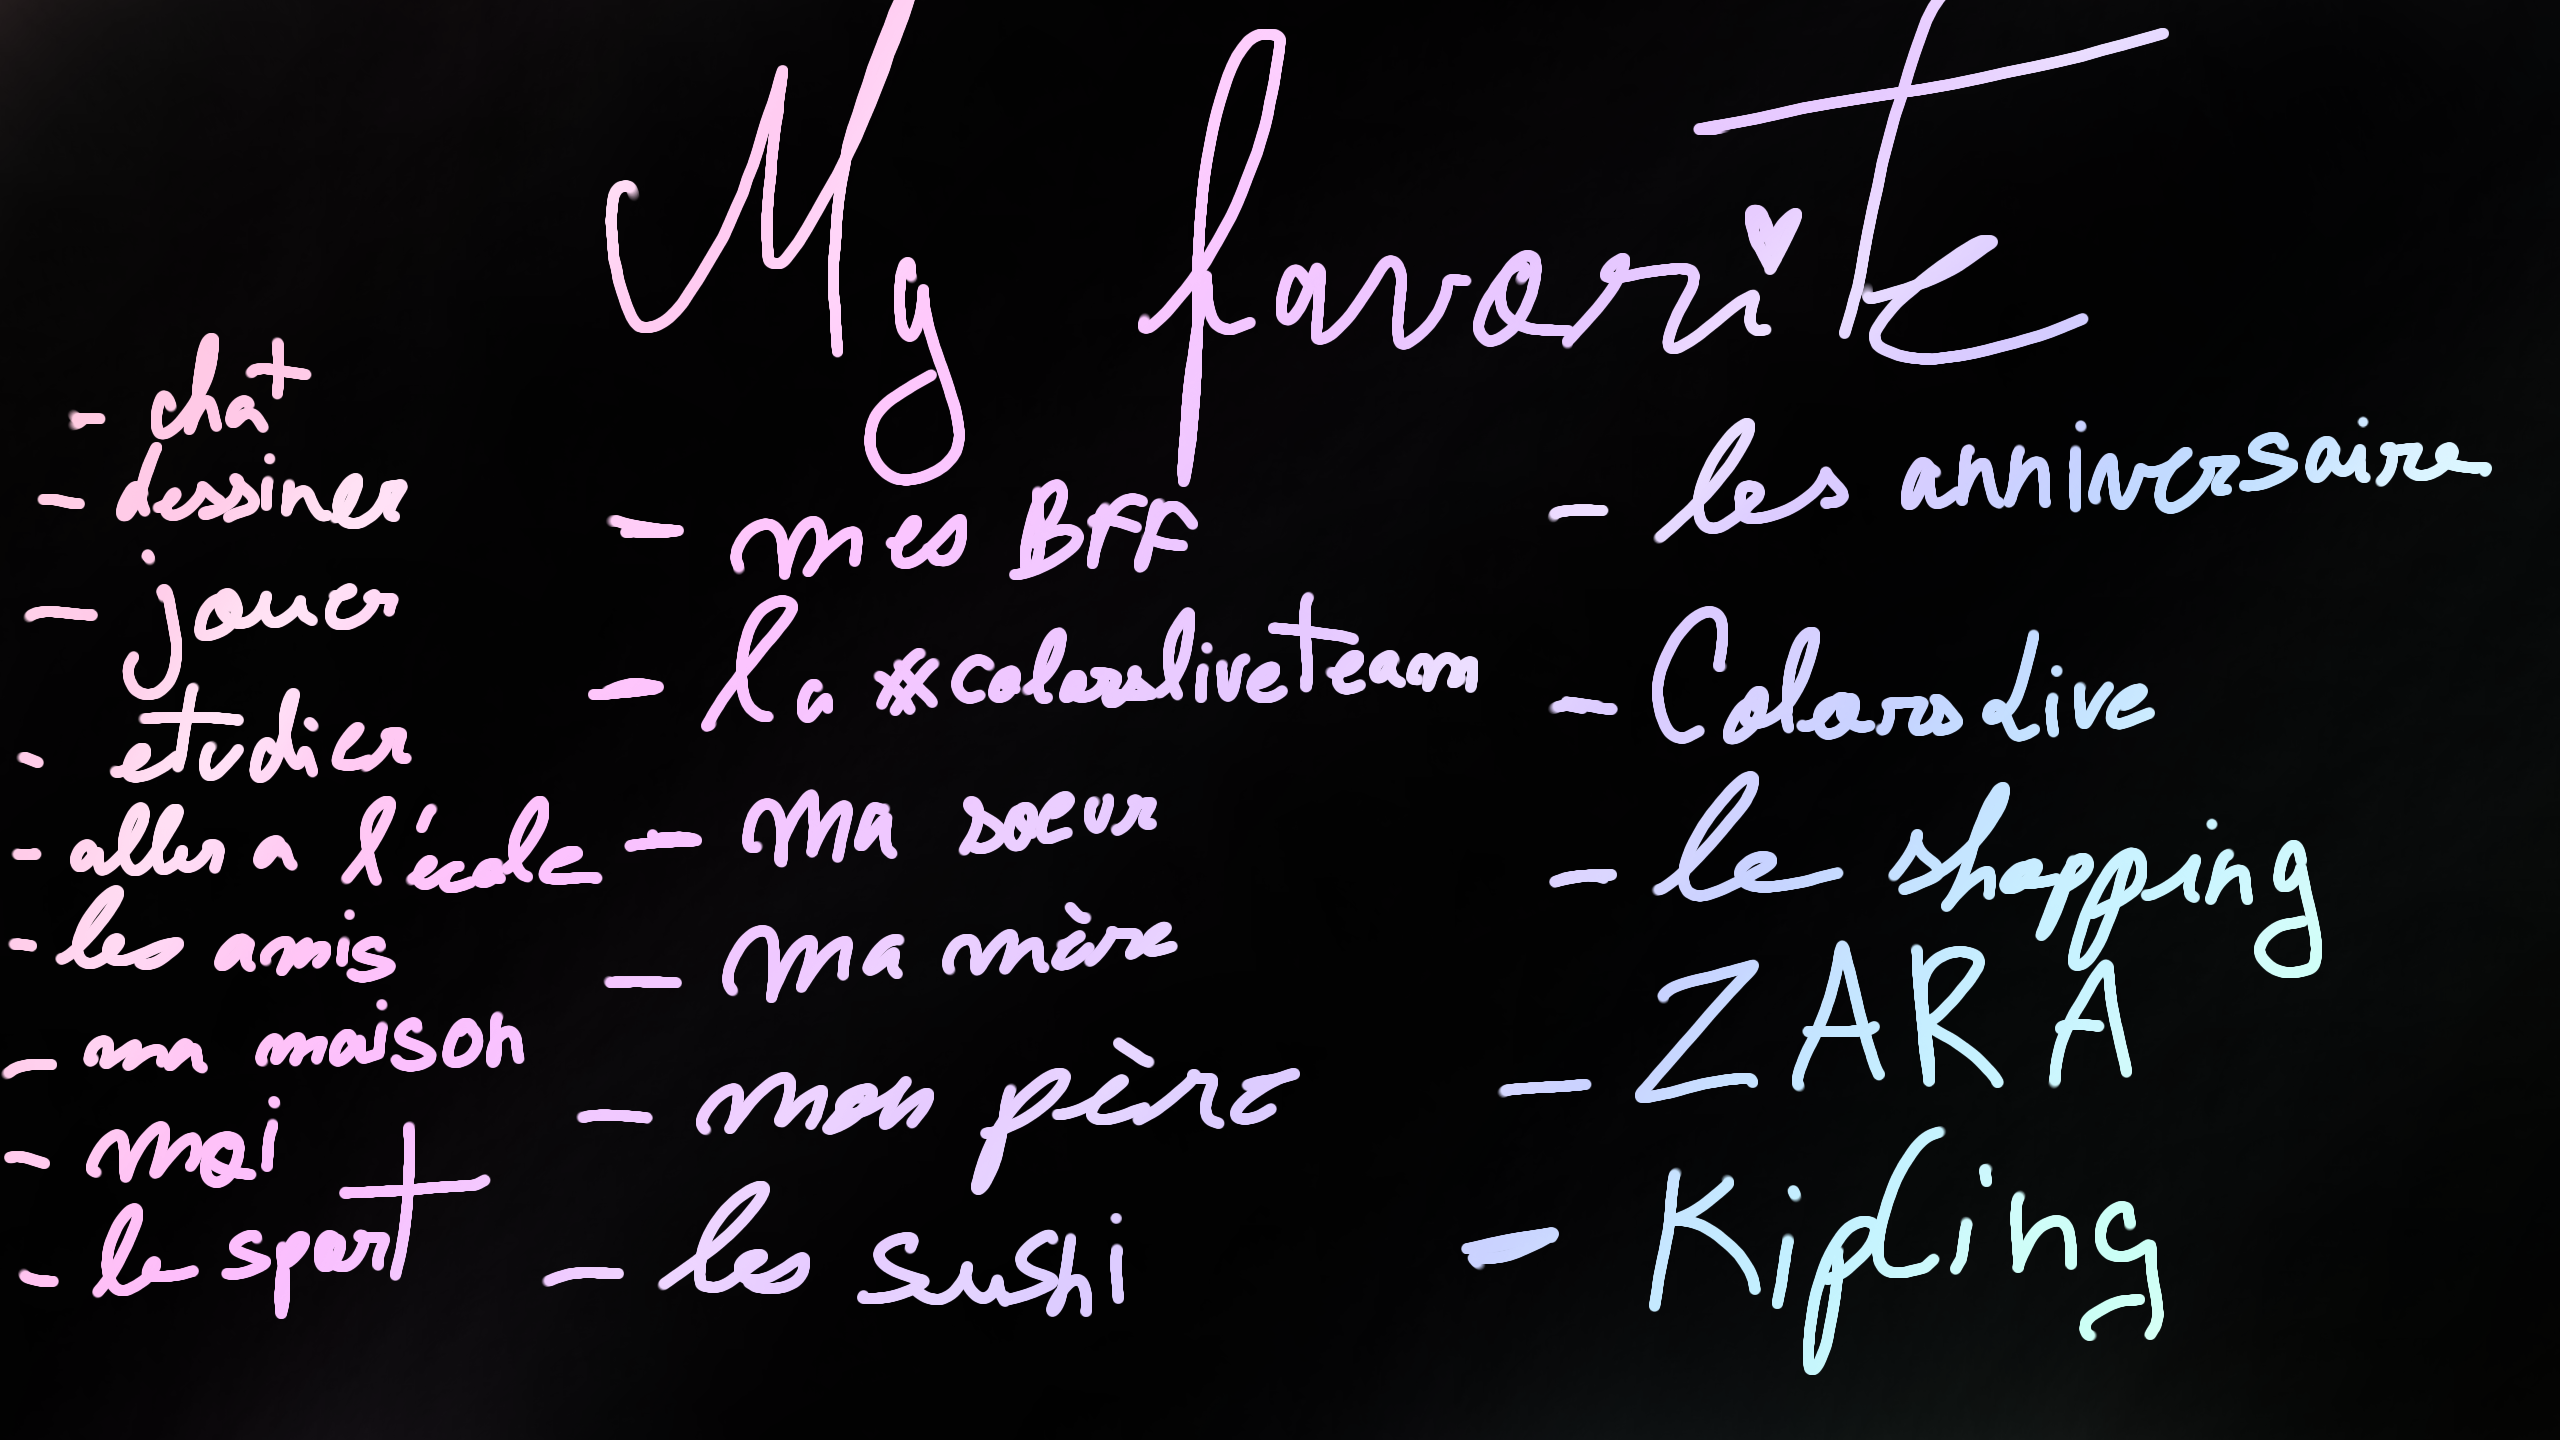 My favorite
- chat
- dessiner
- jouer
- etudier
- aller a l'école
- les amis
- ma maison
- moi
- le sport
- mes BFF
- la #colorsliveteam
- ma soeur
- ma mère
- mon père
- les sushi
- les anniversaire
- Colors Live
- le shopping
- ZARA
- Kipling